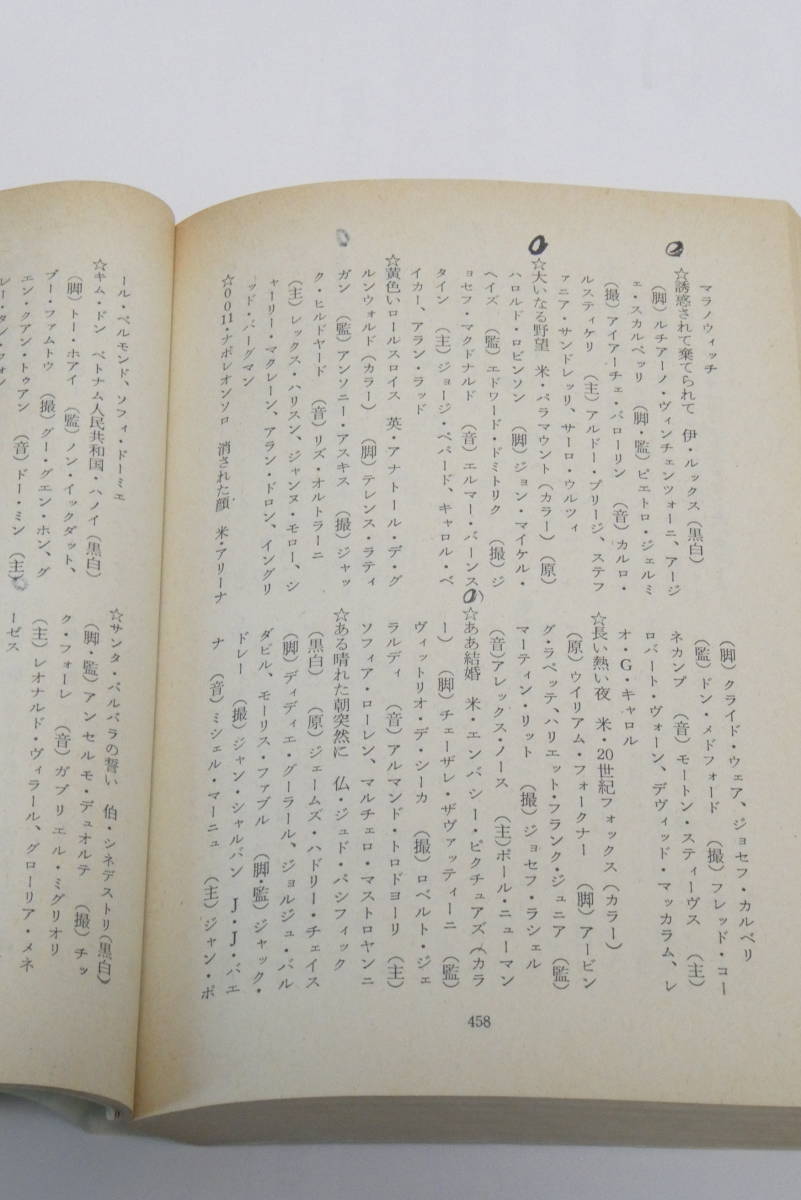 マラノウィッチ
☆誘惑されて棄てられて　伊・ルックス（黒白）
（脚）ルチアーノ・ヴィンチェンツォーニ、アージ
ェ・スカルペッリ　（脚・監）ピエトロ・ジェルミ
（撮）アイアーチェ・パローリン　（音）カルロ・
ルスティケリ　（主）アルドー・プリージ、ステフ
ァニア・サンドレッリ、サーロ・ウルツィ
☆大いなる野望　米・パラマウント（カラー）（原）
ハロルド・ロビンソン　（脚）ジョン・マイケル・
ヘイズ　（監）エドワード・ドミトリク　（撮）ジ
ョセフ・マクドナルド　（音）エルマー・バーンス
タイン　（主）ジョージ・ペパード、キャロル・ベ
イカー、アラン・ラッド
☆黄色いロールスロイス　英・アナトール・デ・グ
ルンウォルド（カラー）　（脚）テレンス・ラティ
ガン　（監）アンソニー・アスキス　（撮）ジャッ
ク・ヒルドヤード　（音）リズ・オルトラーニ
（主）レックス・ハリスン、ジャンヌ・モロー、シ
ャーリー・マクレーン、アラン・ドロン、イングリ
ッド・バーグマン
☆0011・ナポレオンソロ　消された顔　米・アリーナ
（脚）クライド・ウェア、ジョセフ・カルベリ
（監）ドン・メドフォード　（撮）フレッド・コー
ネカンプ　（音）モートン・スティーヴス　（主）
ロバート・ヴォーン、デヴィッド・マッカラム、レ
オ・G・キャロル
☆長い熱い夜　米・20世紀フォックス（カラー）
（原）ウイリアム・フォークナー　（脚）アービン
グ・ラベッテ、ハリエット・フランク・ジュニア（監）
マーティン・リット　（撮）ジョセフ・ラシェル
（音）アレックス・ノース　（主）ポール・ニューマン
☆ああ結婚　米・エンバシー・ピクチュアズ（カラ
ー）　（脚）チェーザレ・ザヴァッティーニ　（監）
ヴィットリオ・デ・シーカ　（撮）ロベルト・ジェ
ラルディ　（音）アルマンド・トロドヨーリ　（主）
ソフィア・ローレン、マルチェロ・マストロヤンニ
☆ある晴れた朝突然に　仏・ジュド・パシフィック
（黒白）　（原）ジェームズ・ハドリー・チェイス
（脚）ディディエ・グーラール、ジョルジュ・バル
ダビル、モーリス・ファブル　（脚・監）ジャック・
ドレー　（撮）ジャン・シャルバン　J・J・バエ
ナ　（音）ミシェル・マーニュ　（主）ジャン・ポ
458
ール・ベルモンド、ソフィ・ドーミエ
☆キム・ドン　ベトナム人民共和国・ハノイ（黒白）
（脚）トー・ホアイ　（監）ノン・イックダット、
ブー・ファムトウ　（撮）グー・グエン・ホン、グ
エン・クアン・トゥアン　（音）ドー・ミン　（主）
レー・タン・フォン
☆サンタ・バルバラの誓い　伯・シネデストリ（黒白）
（脚・監）アンセルモ・デュオルテ　（撮）チッ
ク・フォーレ　（音）ガブリエル・ミグリオリ
（主）レオナルド・ヴィラール、グローリア・メネ
ーゼス